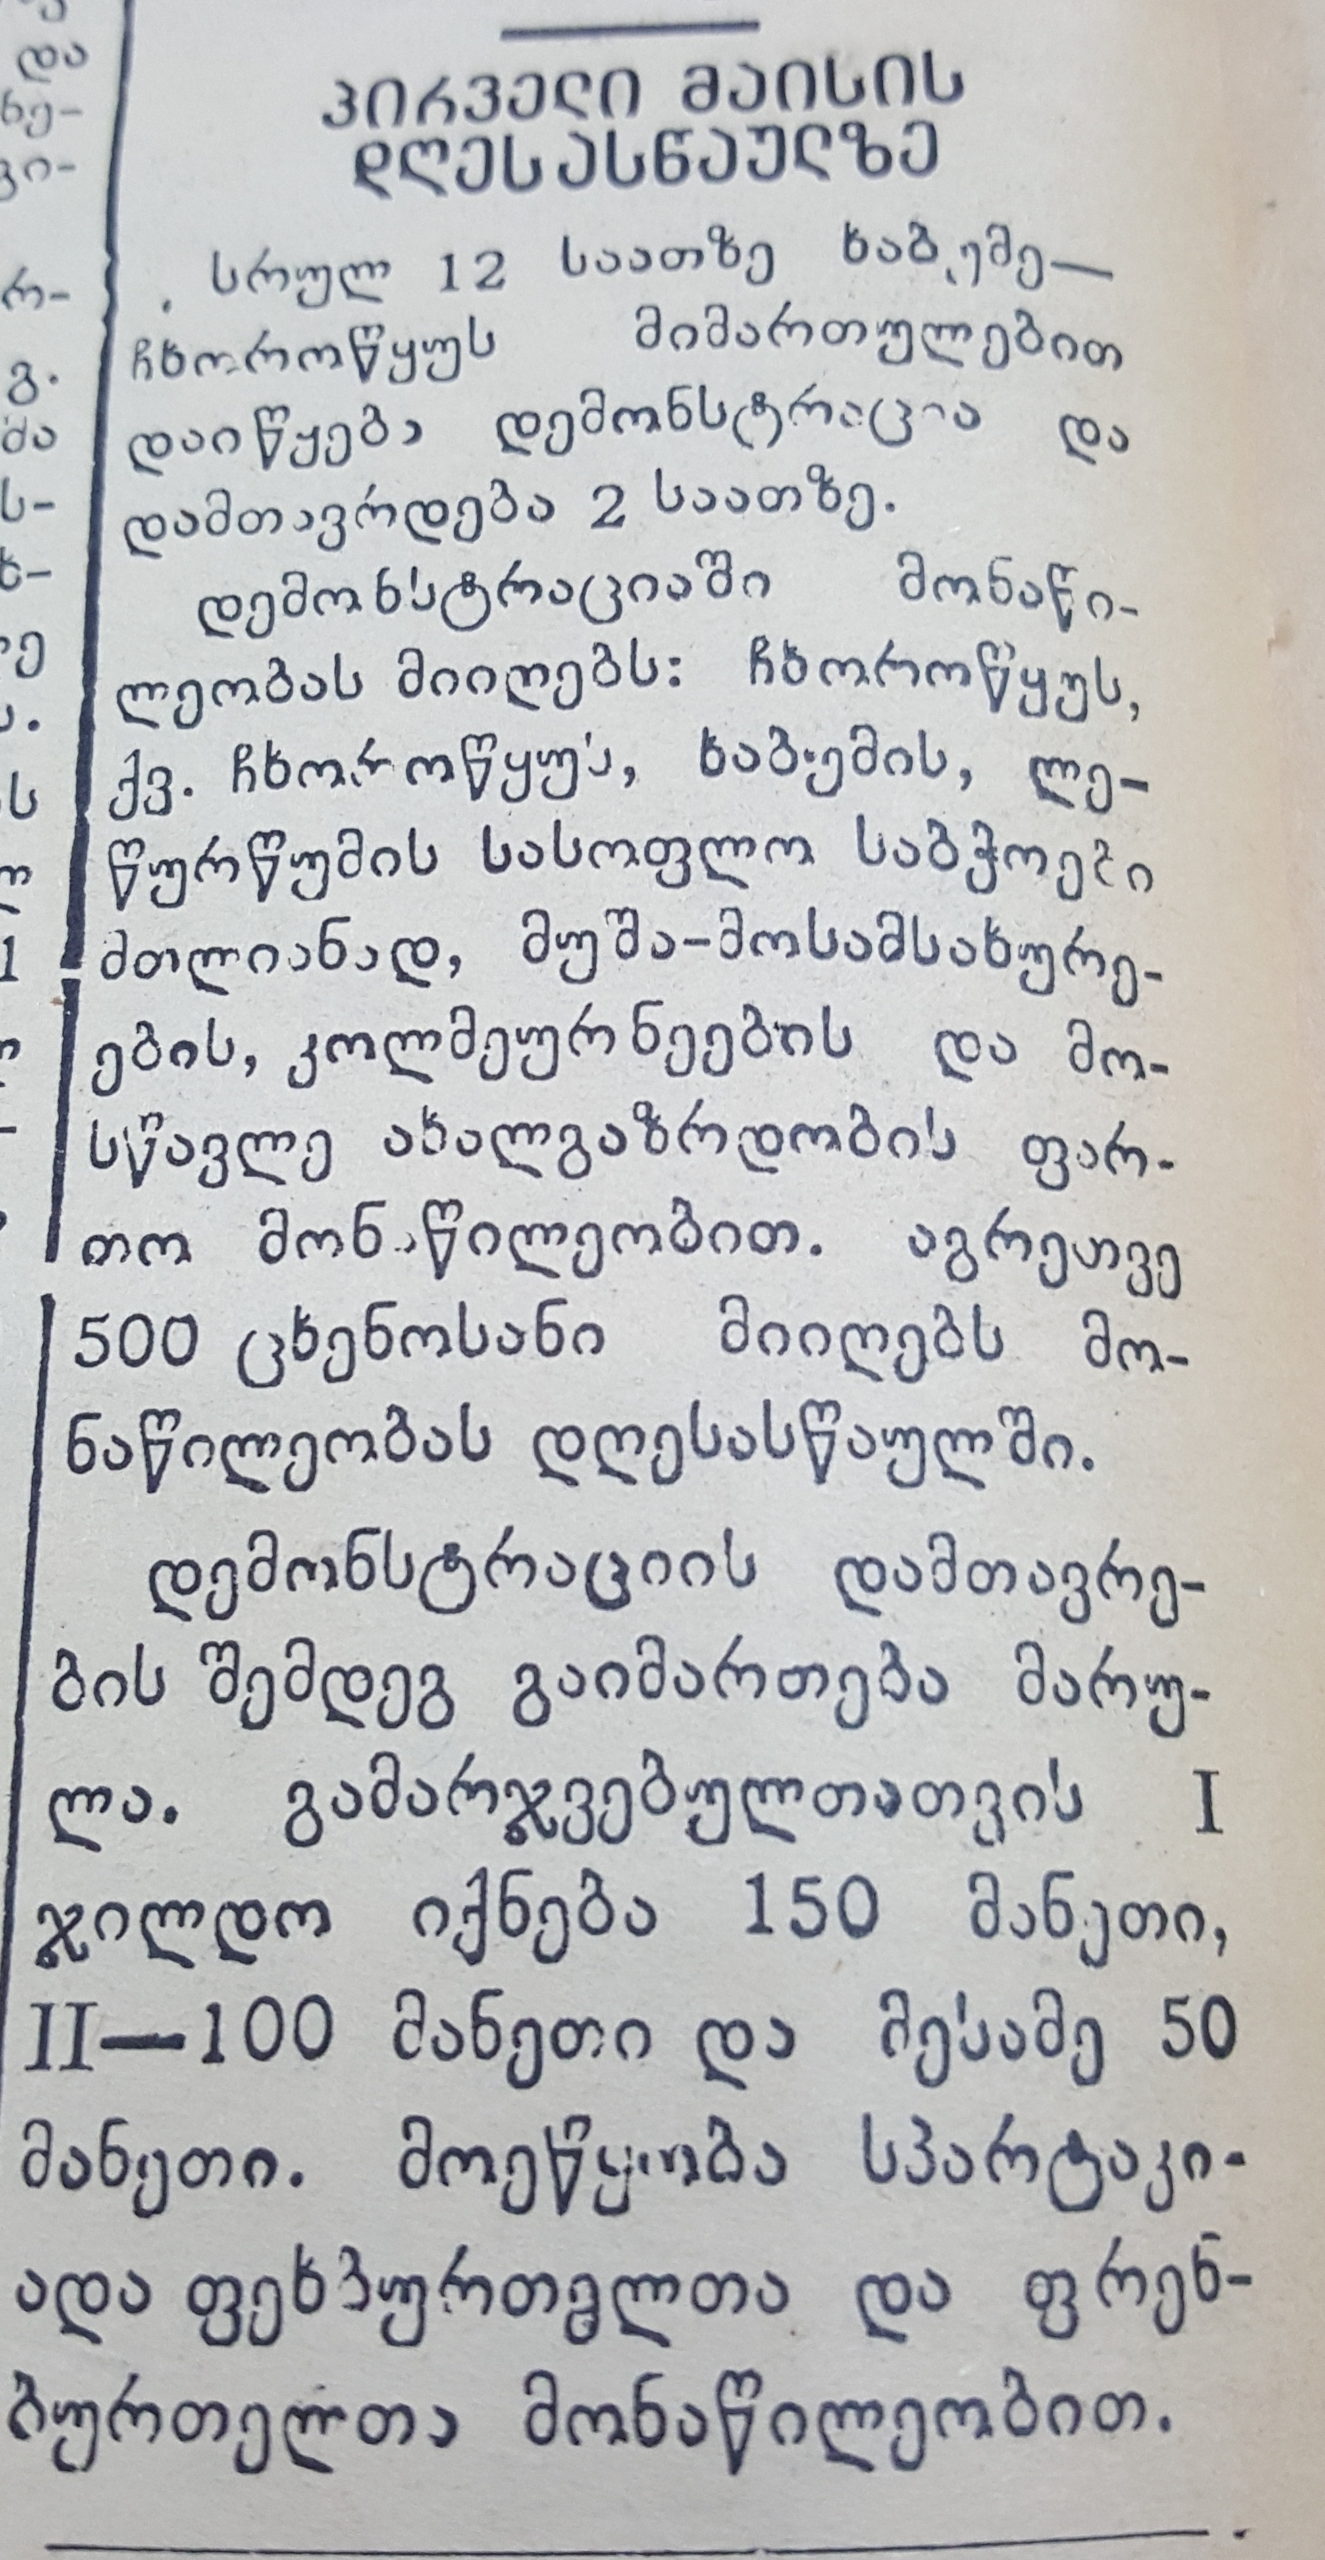 პირველი მაისის
დღესასწაულზე
სრულ 12 საათზე ხაბუმე—
ჩხოროწყუს მიმართულებით
დაიწყება დემონსტრაცია და
დამთავრდება 2 საათზე.
დემონსტრაციაში მონაწი-
ლეობას მიიღებს: ჩხოროწყუს,
ქვ. ჩხოროწყუს, ხაბუმის, ლე-
წურწუმის სასოფლო საბჭოები
მთლიანად, მუშა-მოსამსახურე-
ების, კოლმეურნეების და მო-
სწავლე ახალგაზრდობის ფარ-
თო მონაწილეობით. აგრეთვე
500 ცხენოსანი მიიღებს მო-
ნაწილეობას დღესასწაულში.
დემონსტრაციის დამთავრე-
ბის შემდეგ გაიმართება მარუ-
ლა. გამარჯვებულთათვის I
ჯილდო იქნება 150 მანეთი,
II—100 მანეთი და მესამე 50
მანეთი. მოეწყობა სპარტაკი-
ადა ფეხბურთელთა და ფრენ-
ბურთელთა მონაწილეობით.